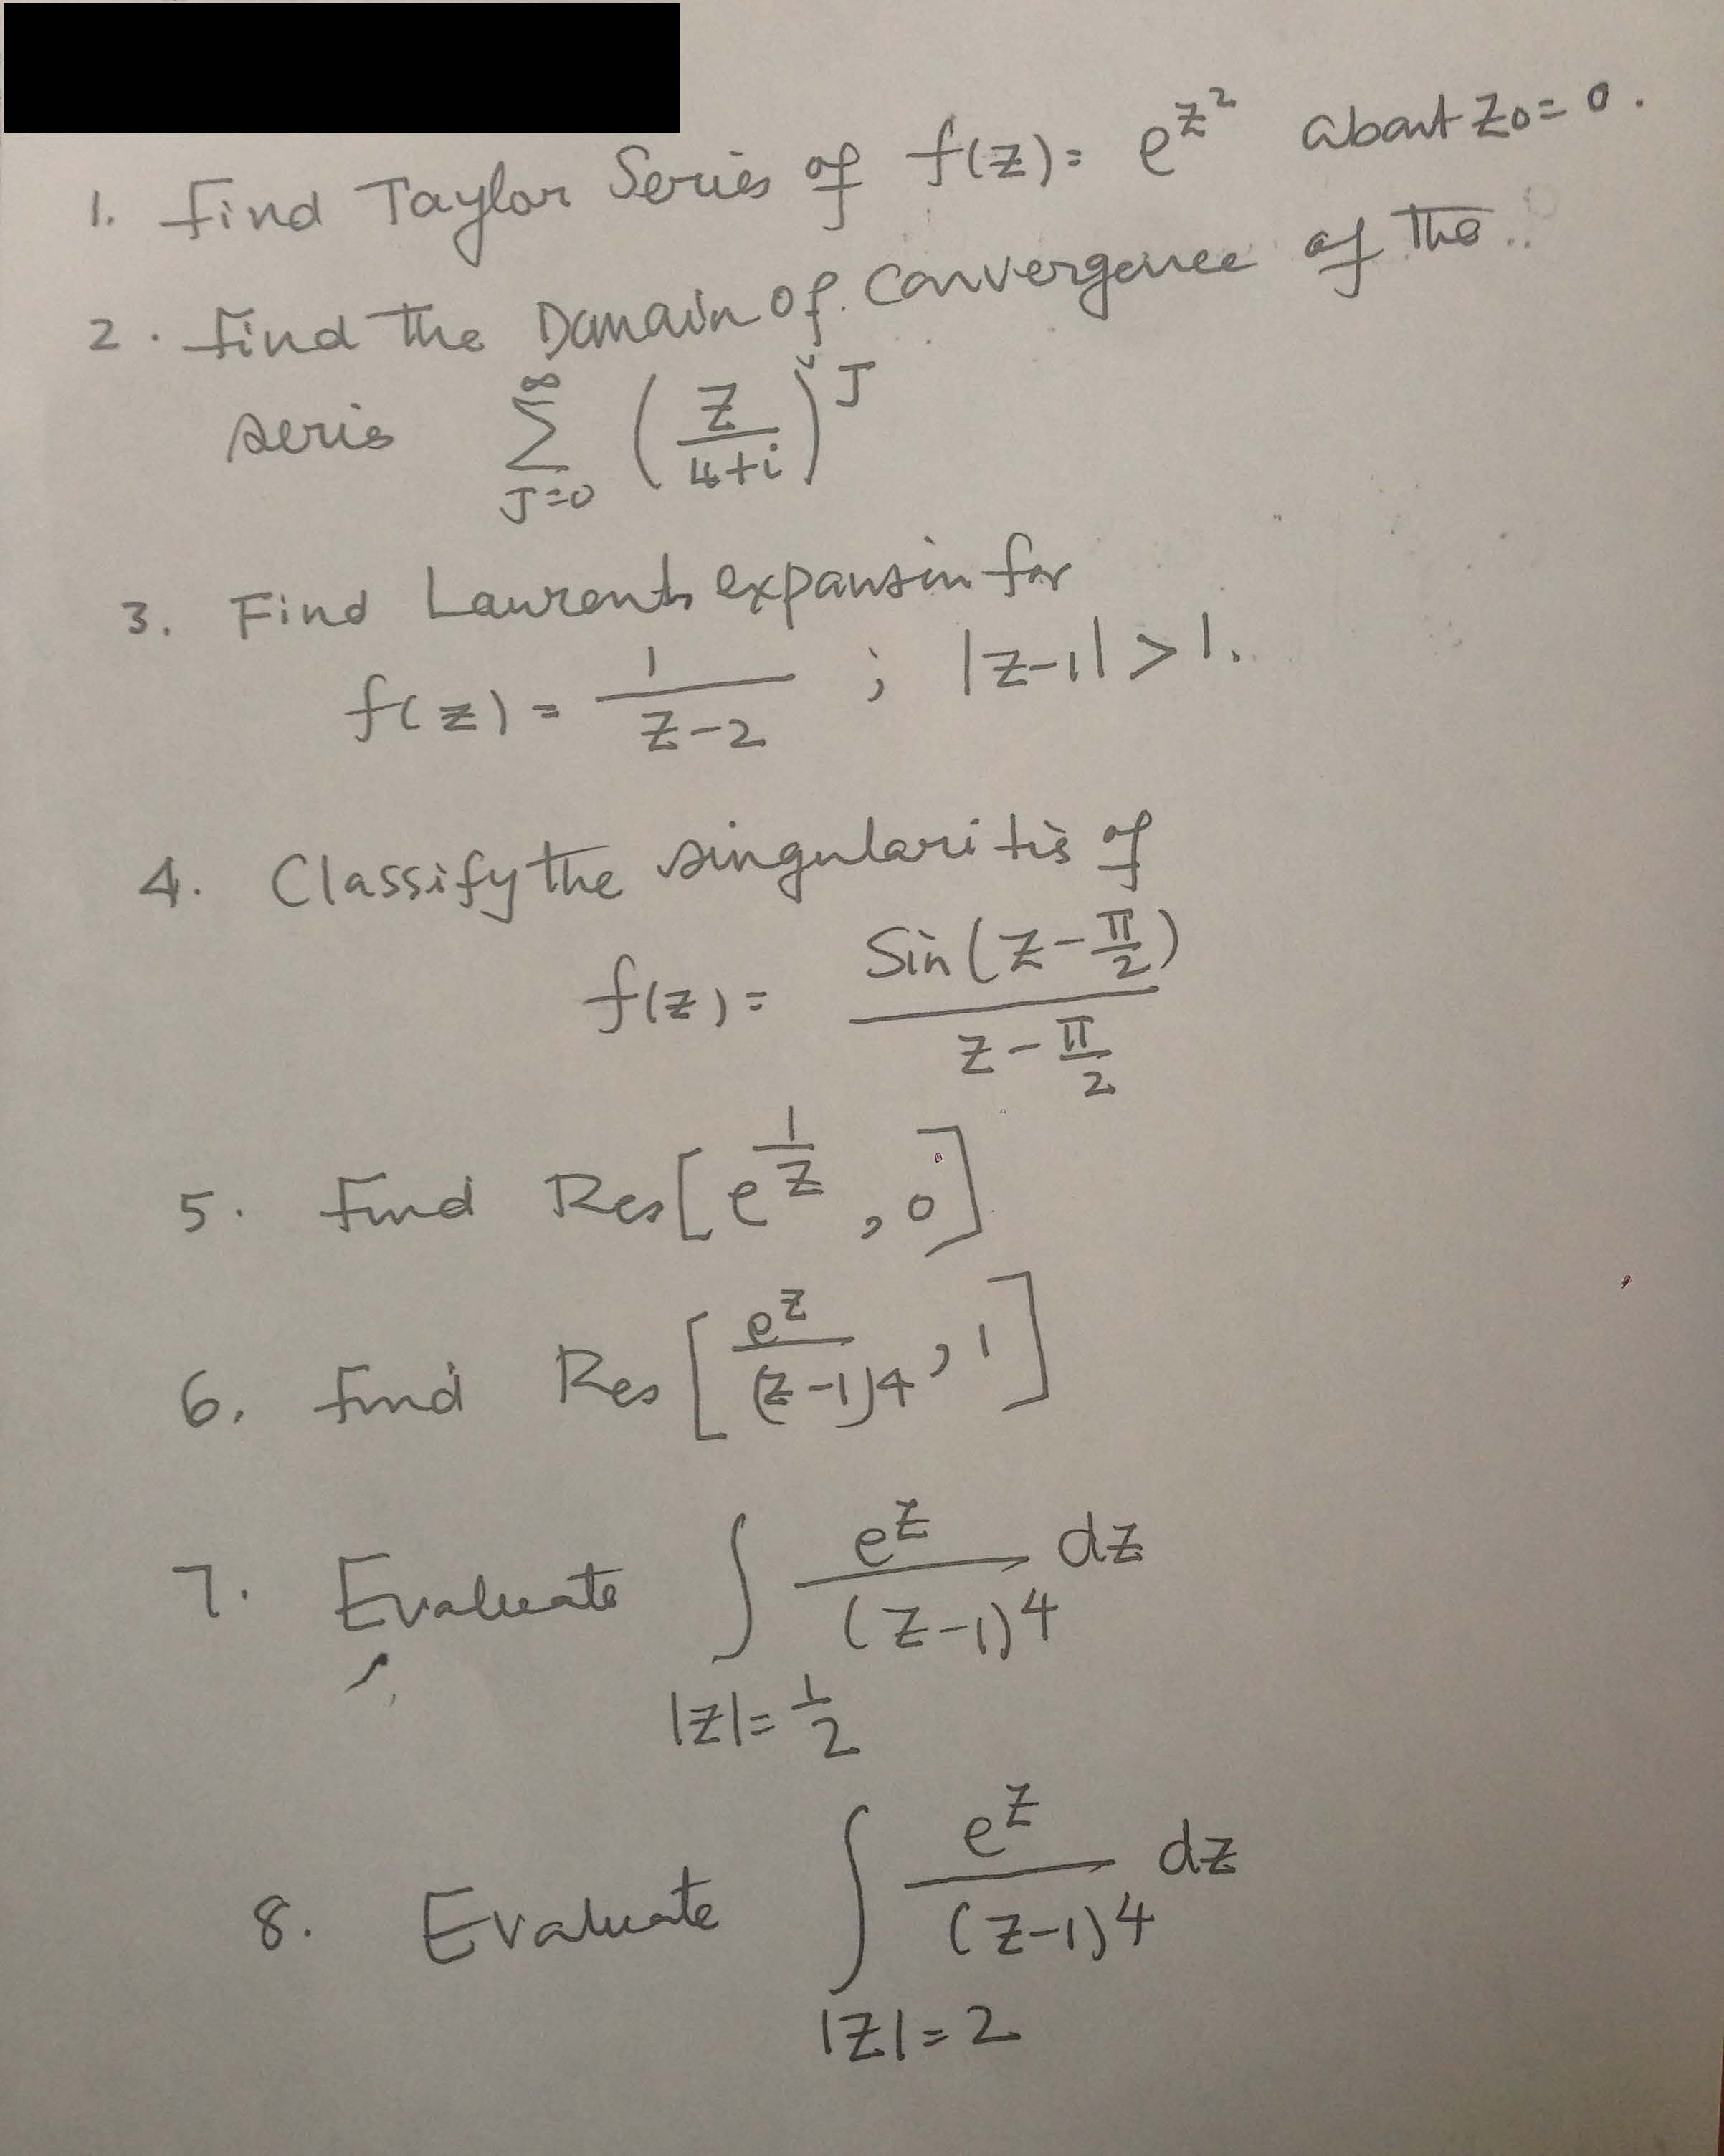 1. Find Taylor Series of f(z) = e^{z^2} about z_0 = 0.
2. Find the Domain of convergence of the
seris \sum_{J=0}^{\infty} \left( \frac{z}{4+i} \right)^J
3. Find Laurents expansin for
f(z) = \frac{1}{z-2} ; |z-1| > 1.
4. Classify the singularitis of
f(z) = \frac{Sin(z - \frac{\pi}{2})}{z - \frac{\pi}{2}}
5. Find Res[e^{\frac{1}{z}}, 0]
6. Find Res[\frac{e^z}{(z-1)^4}, 1]
7. Evaluate \int_{|z| = \frac{1}{2}} \frac{e^z}{(z-1)^4} dz
8. Evaluate \int_{|z| = 2} \frac{e^z}{(z-1)^4} dz